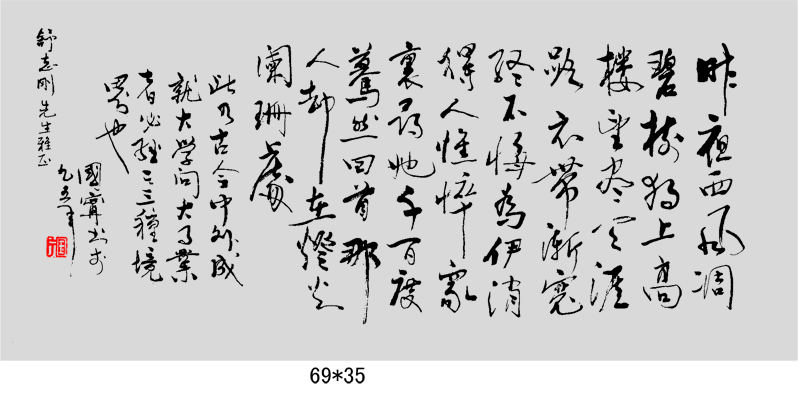 昨夜西風凋
碧树独上高
樓望尽天涯
路衣带漸寬
終不悔為伊消
得人憔悴衆
裏尋她千百度
驀然回首那
人却在燈火
闌珊處
此乃古今中外成
就大学问大事業
者必經之三種境
界也
國寧书於
舒志剛先生雅正
69*35